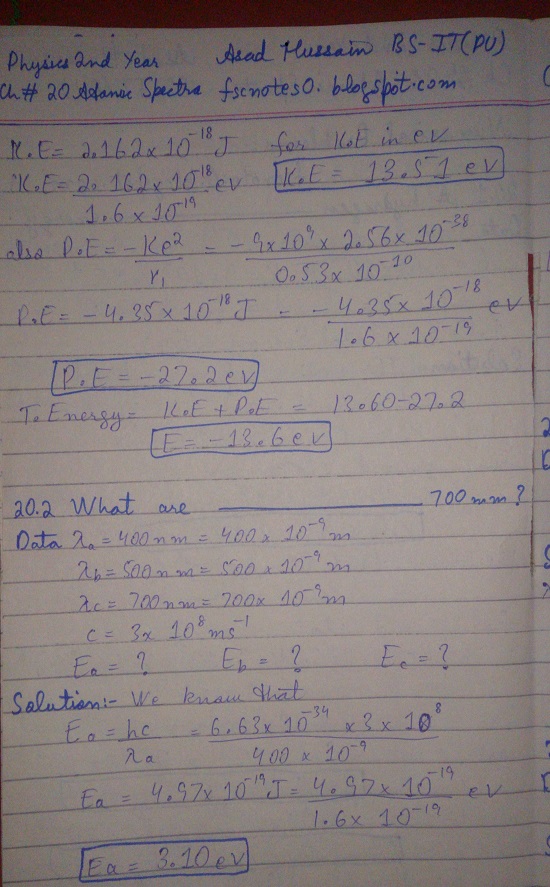 Physics 2nd Year Asad Hussain BS-IT(PU)
Ch# 20 Atomic Spectra fscnotes0.blogspot.com
K.E = 2.162x10⁻¹⁸J for K.E in ev
K.E = 2.162x10⁻¹⁸ ev K.E = 13.51 ev
1.6x10⁻¹⁹
also P.E = -Ke² = -9x10⁹x 2.56x 10⁻³⁸
r₁ 0.53x 10⁻¹⁰
P.E = -4.35x10⁻¹⁸J - - 4.35x 10⁻¹⁸ ev
1.6x 10⁻¹⁹
P.E = -27.2ev
T.Energy = K.E + P.E = 13.60-27.2
E = -13.6ev
20.2 What are ______ 700mm?
Data λa = 400nm = 400x 10⁻⁹m
λb = 500nm = 500x10⁻⁹m
λc = 700nm = 700x 10⁻⁹m
c = 3x 10⁸ms⁻¹
Ea = ? Eb = ? Ec = ?
Solution:- We know that
Ea = hc = 6.63x10⁻³⁴ x3x 10⁸
λa 400 x 10⁻⁹
Ea = 4.97x 10⁻¹⁹J = 4.97x 10⁻¹⁹ ev
1.6x 10⁻¹⁹
Ea = 3.10ev